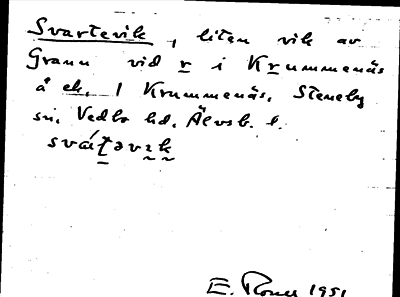 Svartevik, liten vik av
Grann vid r i Krummenäs
å ek. 1 Krummenäs, Steneby
sn, Vedbo hd, Älvsb. l.
svát̠əvɪk
E. 1951